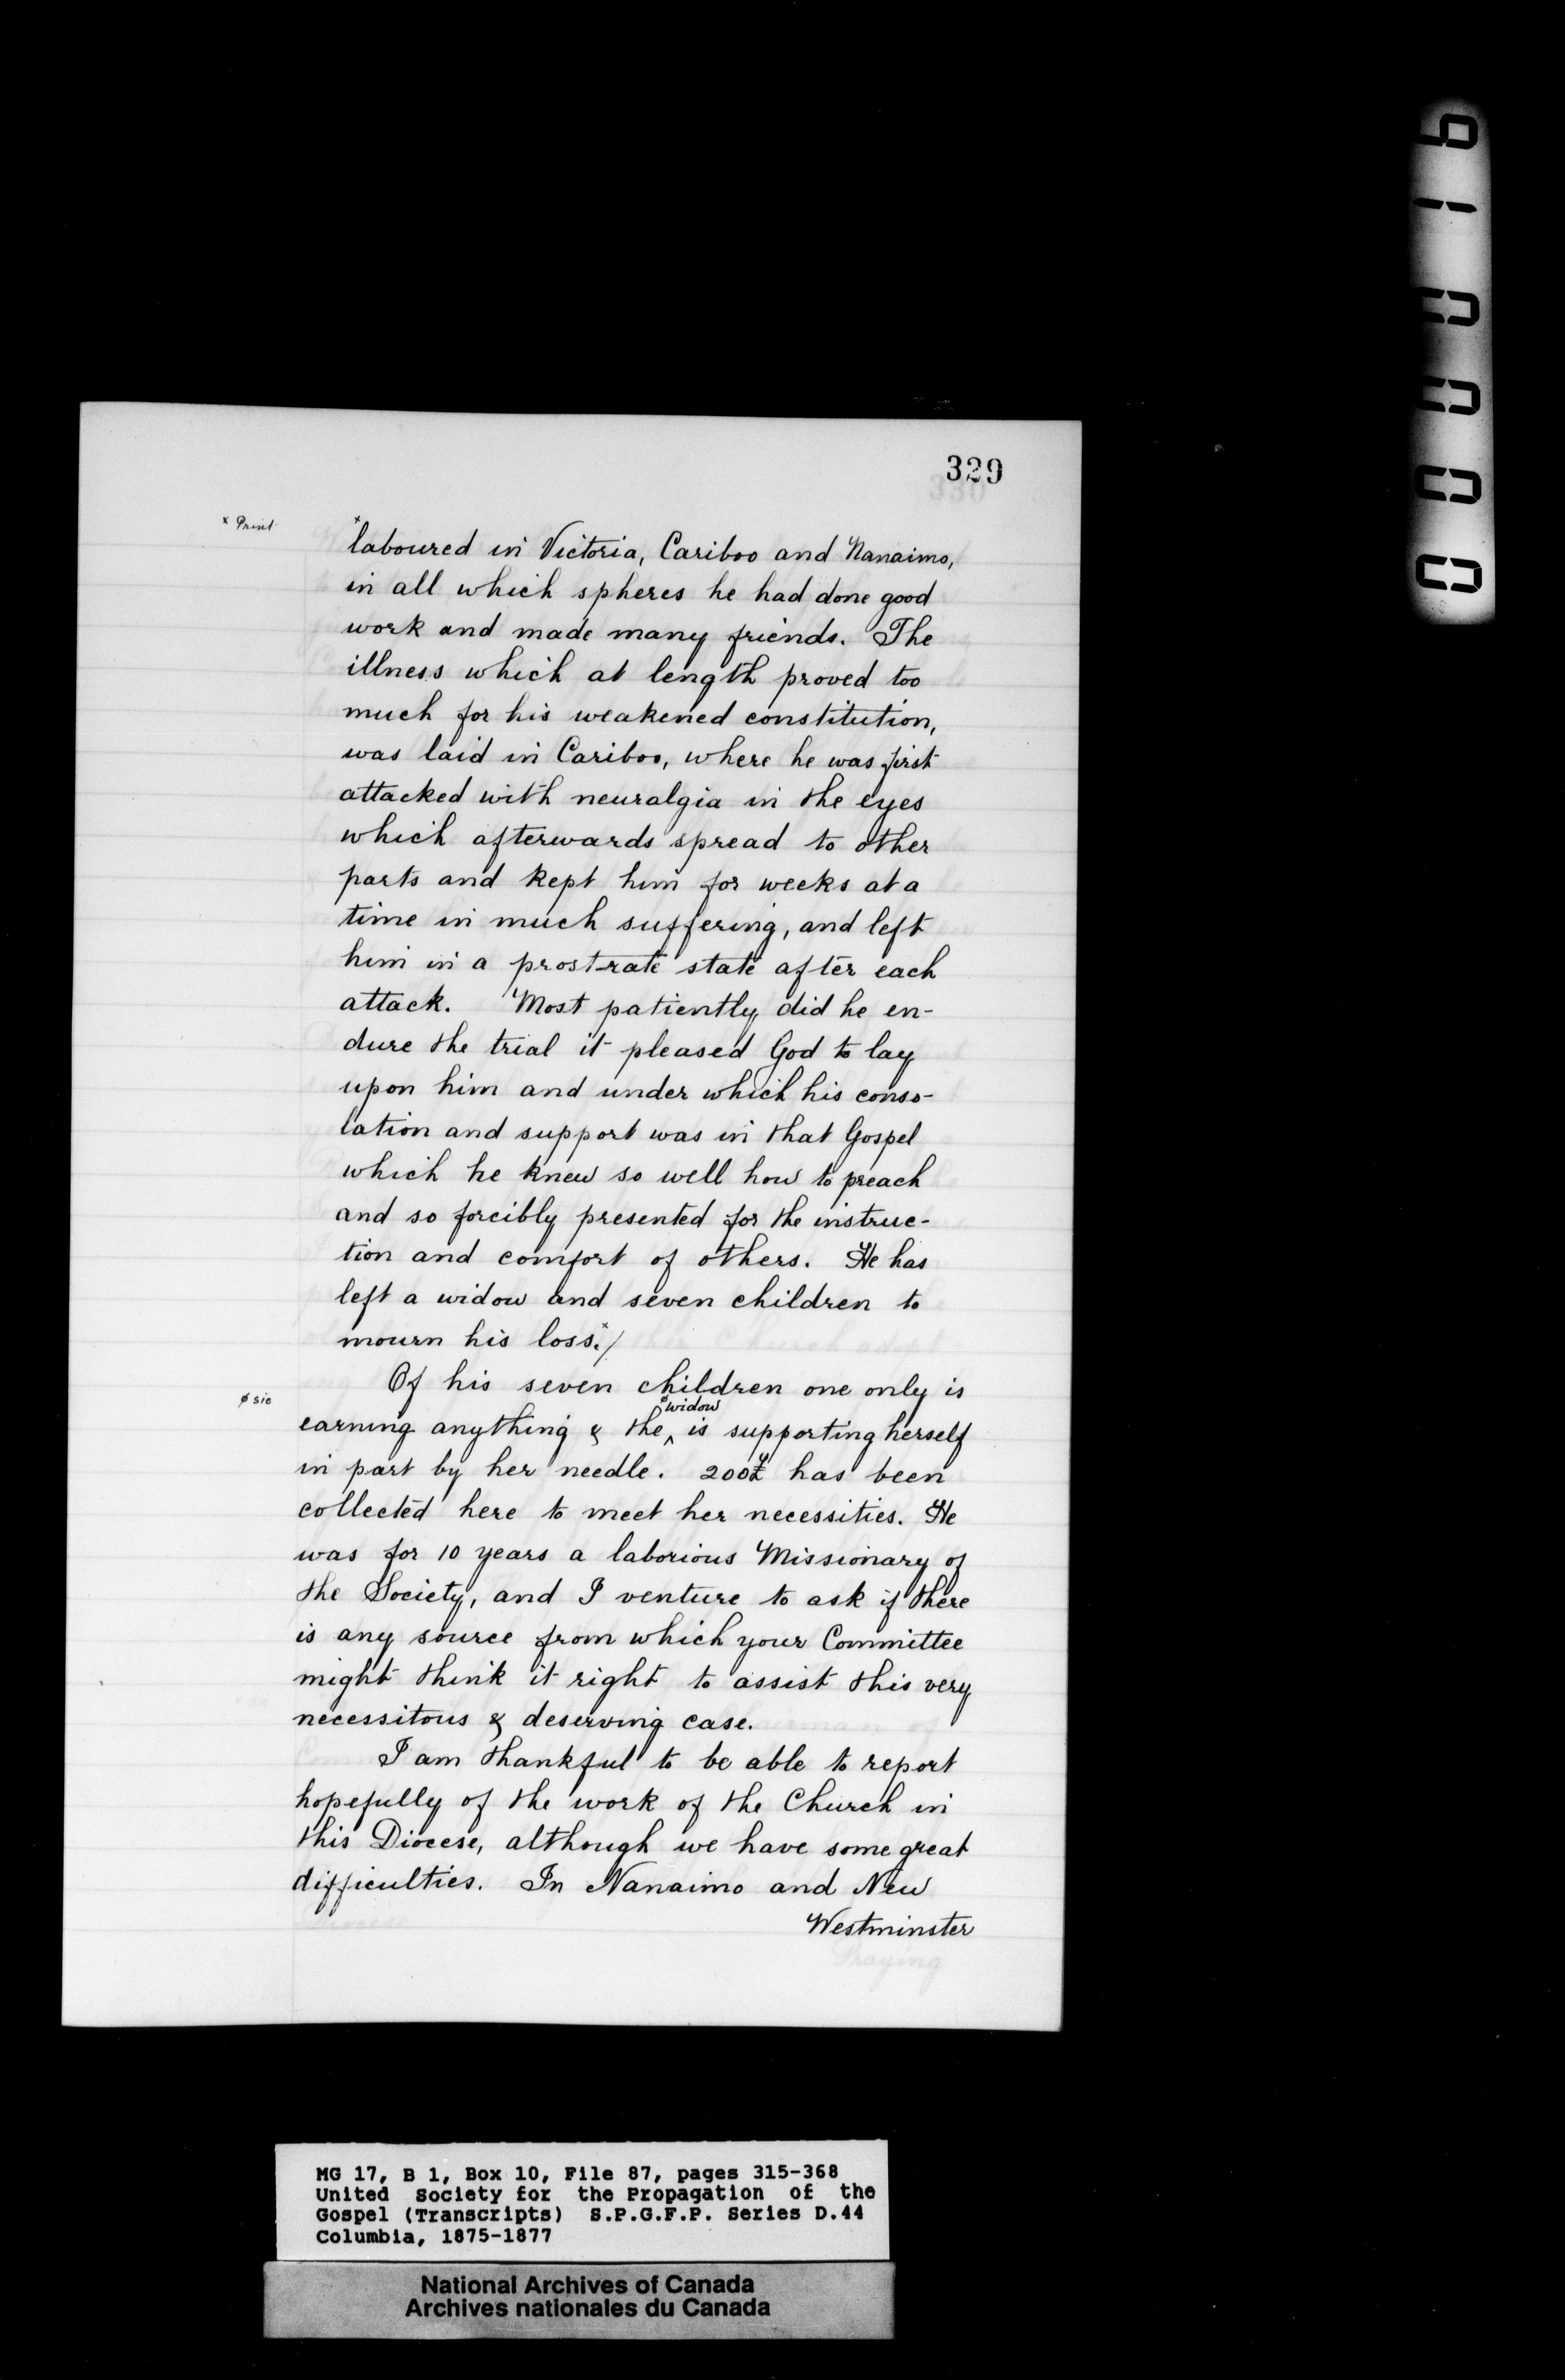 000016
329
x Print
x laboured in Victoria, Cariboo and Nanaimo,
in all which spheres he had done good
work and made many friends. The
illness which at length proved too
much for his weakened constitution,
was laid in Cariboo, where he was first
attacked with neuralgia in the eyes
which afterwards spread to other
parts and kept him for weeks at a
time in much suffering, and left
him in a prostrate state after each
attack. Most patiently did he en-
dure the trial it pleased God to lay
upon him and under which his conso-
lation and support was in that Gospel
which he knew so well how to preach
and so forcibly presented for the instruc-
tion and comfort of others. He has
left a widow and seven children to
mourn his loss.x/
Of his seven children one only is
ø sic
ø widow
earning anything & the ^ is supporting herself
in part by her needle. 200£ has been
collected here to meet her necessities. He
was for 10 years a laborious Missionary of
the Society, and I venture to ask if there
is any source from which your Committee
might think it right to assist this very
necessitous & deserving case.
I am thankful to be able to report
hopefully of the work of the Church in
this Diocese, although we have some great
difficulties. In Nanaimo and New
Westminster
MG 17, B 1, Box 10, File 87, pages 315-368
United Society for the Propagation of the
Gospel (Transcripts) S.P.G.F.P. Series D.44
Columbia, 1875-1877
National Archives of Canada
Archives nationales du Canada